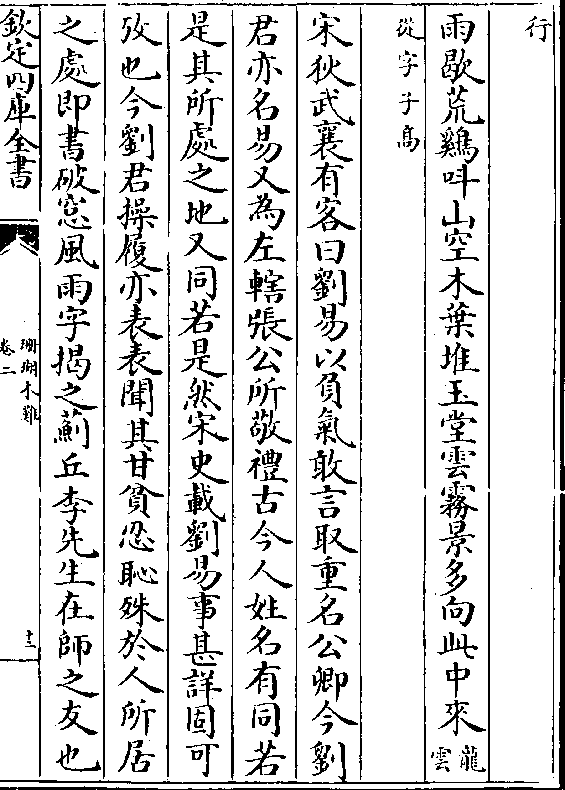 行
雨歇荒鷄呌山空木葉堆玉堂雲霧景多向此中來龍雲
從字子高
宋狄武襄有客曰劉易以負氣敢言取重名公卿今劉
君亦名易又為左轄張公所敬禮古今人姓名有同若
是其所處之地又同若是然宋史載劉易事甚詳固可
攷也今劉君操履亦表表聞其甘貧忍恥殊於人所居
之處即書破窓風雨字揭之薊丘李先生在師之友也
欽定四庫全書
珊瑚木難
卷二
十二